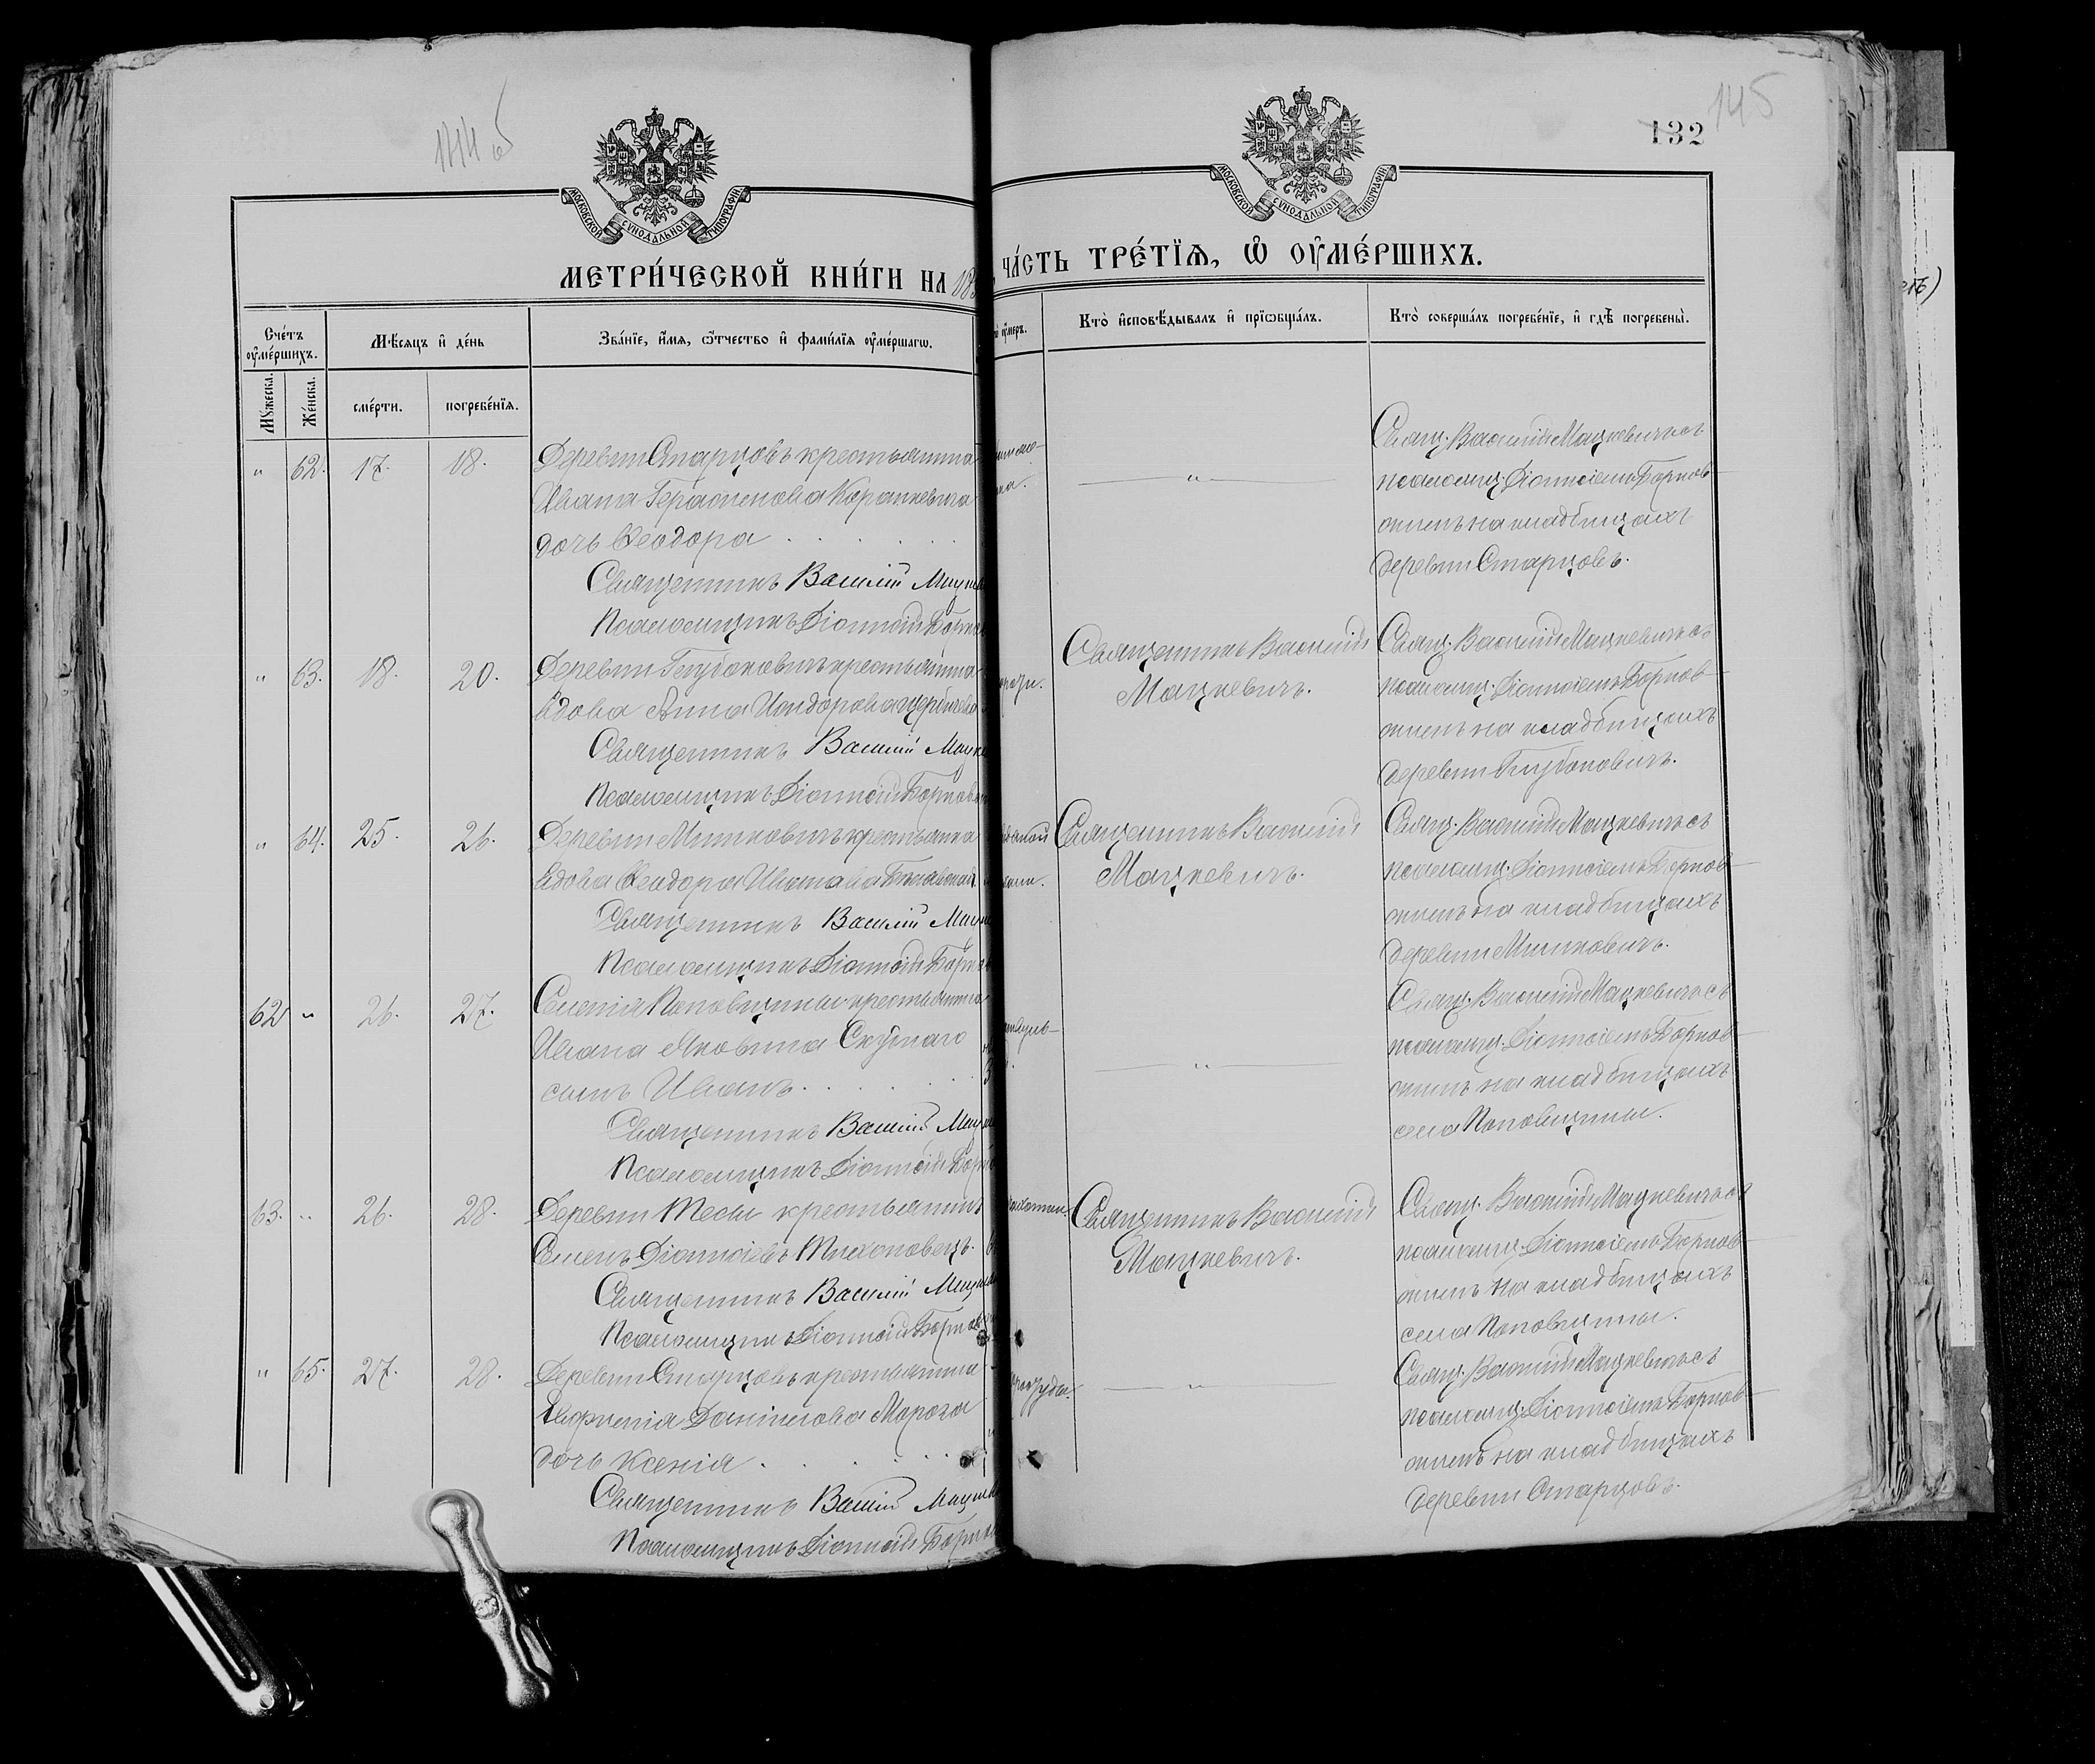 144 об
145
132
МОСКОВСКОЙ СѴНОДАЛЬНОЙ ТИПОГРАФІИ
МОСКОВСКОЙ СѴНОДАЛЬНОЙ ТИПОГРАФІИ
МЕТРИ́ЧЕСКОЙ КНИ́ГИ НА 18
ЧА́СТЬ ТРЕ́ТЇѦ, Ѽ ОУ҆МЕ́РШИХЪ.
Сче́тъ
оу҆ме́ршихъ.
Мꙋ́жеска.
Же́нска.
Мѣ́сяцъ и҆ де́нь
сме́рти.
погребе́нїѧ.
Зва́нїе, и҆́мѧ, ѻ҆́тчество и҆ фами́лїѧ оу҆ме́ршагѡ.
оу҆́меръ.
Кто̀ и҆сповѣ́дывалъ и҆ прїѡбща́лъ.
Кто̀ соверша́лъ погребе́нїе, и҆ гдѣ̀ погребены̀.
" 62. 17. 18.
Деревни Старцовъ крестьянина
Ивана Герасимова Коранкевича
дочь Ѳеодора
Священникъ Василій Мацке
Псаломщикъ Діонисій Борнов
"
Свящ. Василій Мацкевичъ съ
псаломщ. Діонисіемъ Борнов-
скимъ на кладбищахъ
деревни Старцовъ.
" 63. 18. 20.
Деревни Глубоковичъ крестьянина
вдова Анна Исидорова
Священникъ Василій Мацке
Псаломщикъ Діонисій Борнов
Священникъ Василій
Мацкевичъ.
Свящ. Василій Мацкевичъ съ
псаломщ. Діонисіемъ Борнов-
скимъ на кладбищахъ
деревни Глубоковичъ.
" 64. 25. 26.
Деревни Мишковичъ крестьянка
вдова Ѳеодора Иванова
Священникъ Василій Мацке
Псаломщикъ Діонисій Борнов
Священникъ Василій
Мацкевичъ.
Свящ. Василій Мацкевичъ съ
псаломщ. Діонисіемъ Борнов-
скимъ на кладбищахъ
деревни Мишковичъ.
62 " 26. 27.
Селенія Поповщины крестьянина
Ивана Яковлева Скубнаго
сынъ Иванъ
Священникъ Василій Мацке
Псаломщикъ Діонисій Борнов
"
Свящ. Василій Мацкевичъ съ
псаломщ. Діонисіемъ Борнов-
скимъ на кладбищахъ
села Поповщины.
63. " 26. 28.
Деревни Тесны крестьянинъ
Семенъ Діонисіевъ Тихоновецъ.
Священникъ Василій Мацке
Псаломщикъ Діонисій Борнов
Священникъ Василій
Мацкевичъ.
Свящ. Василій Мацкевичъ съ
псаломщ. Діонисіемъ Борнов-
скимъ на кладбищахъ
села Поповщины.
" 65. 27. 28.
Деревни Старцовъ крестьянина
Евфимія Даніилова Мороза
дочь Ксенія
Священникъ Василій Мацке
Псаломщикъ Діонисій Борнов
простуды.
"
Свящ. Василій Мацкевичъ съ
псаломщ. Діонисіемъ Борнов-
скимъ на кладбищахъ
деревни Старцовъ.